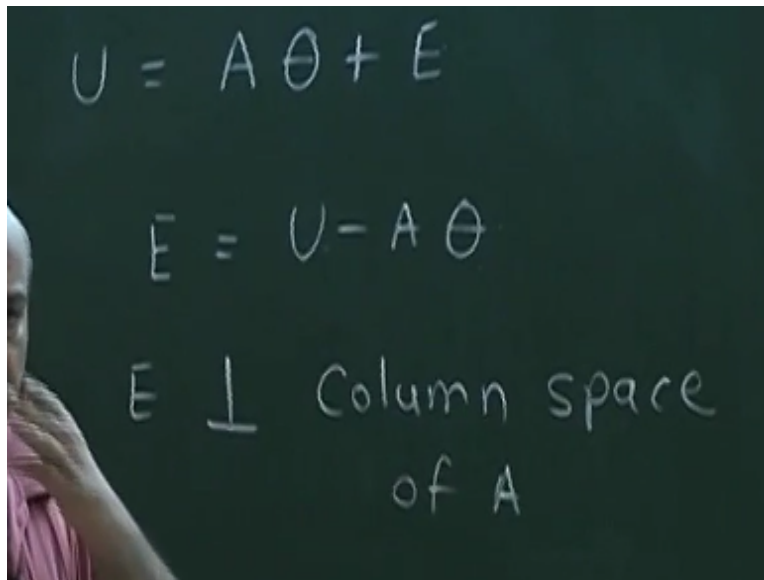 U = A θ + E
E = U - A θ
E ⊥ Column space
of A